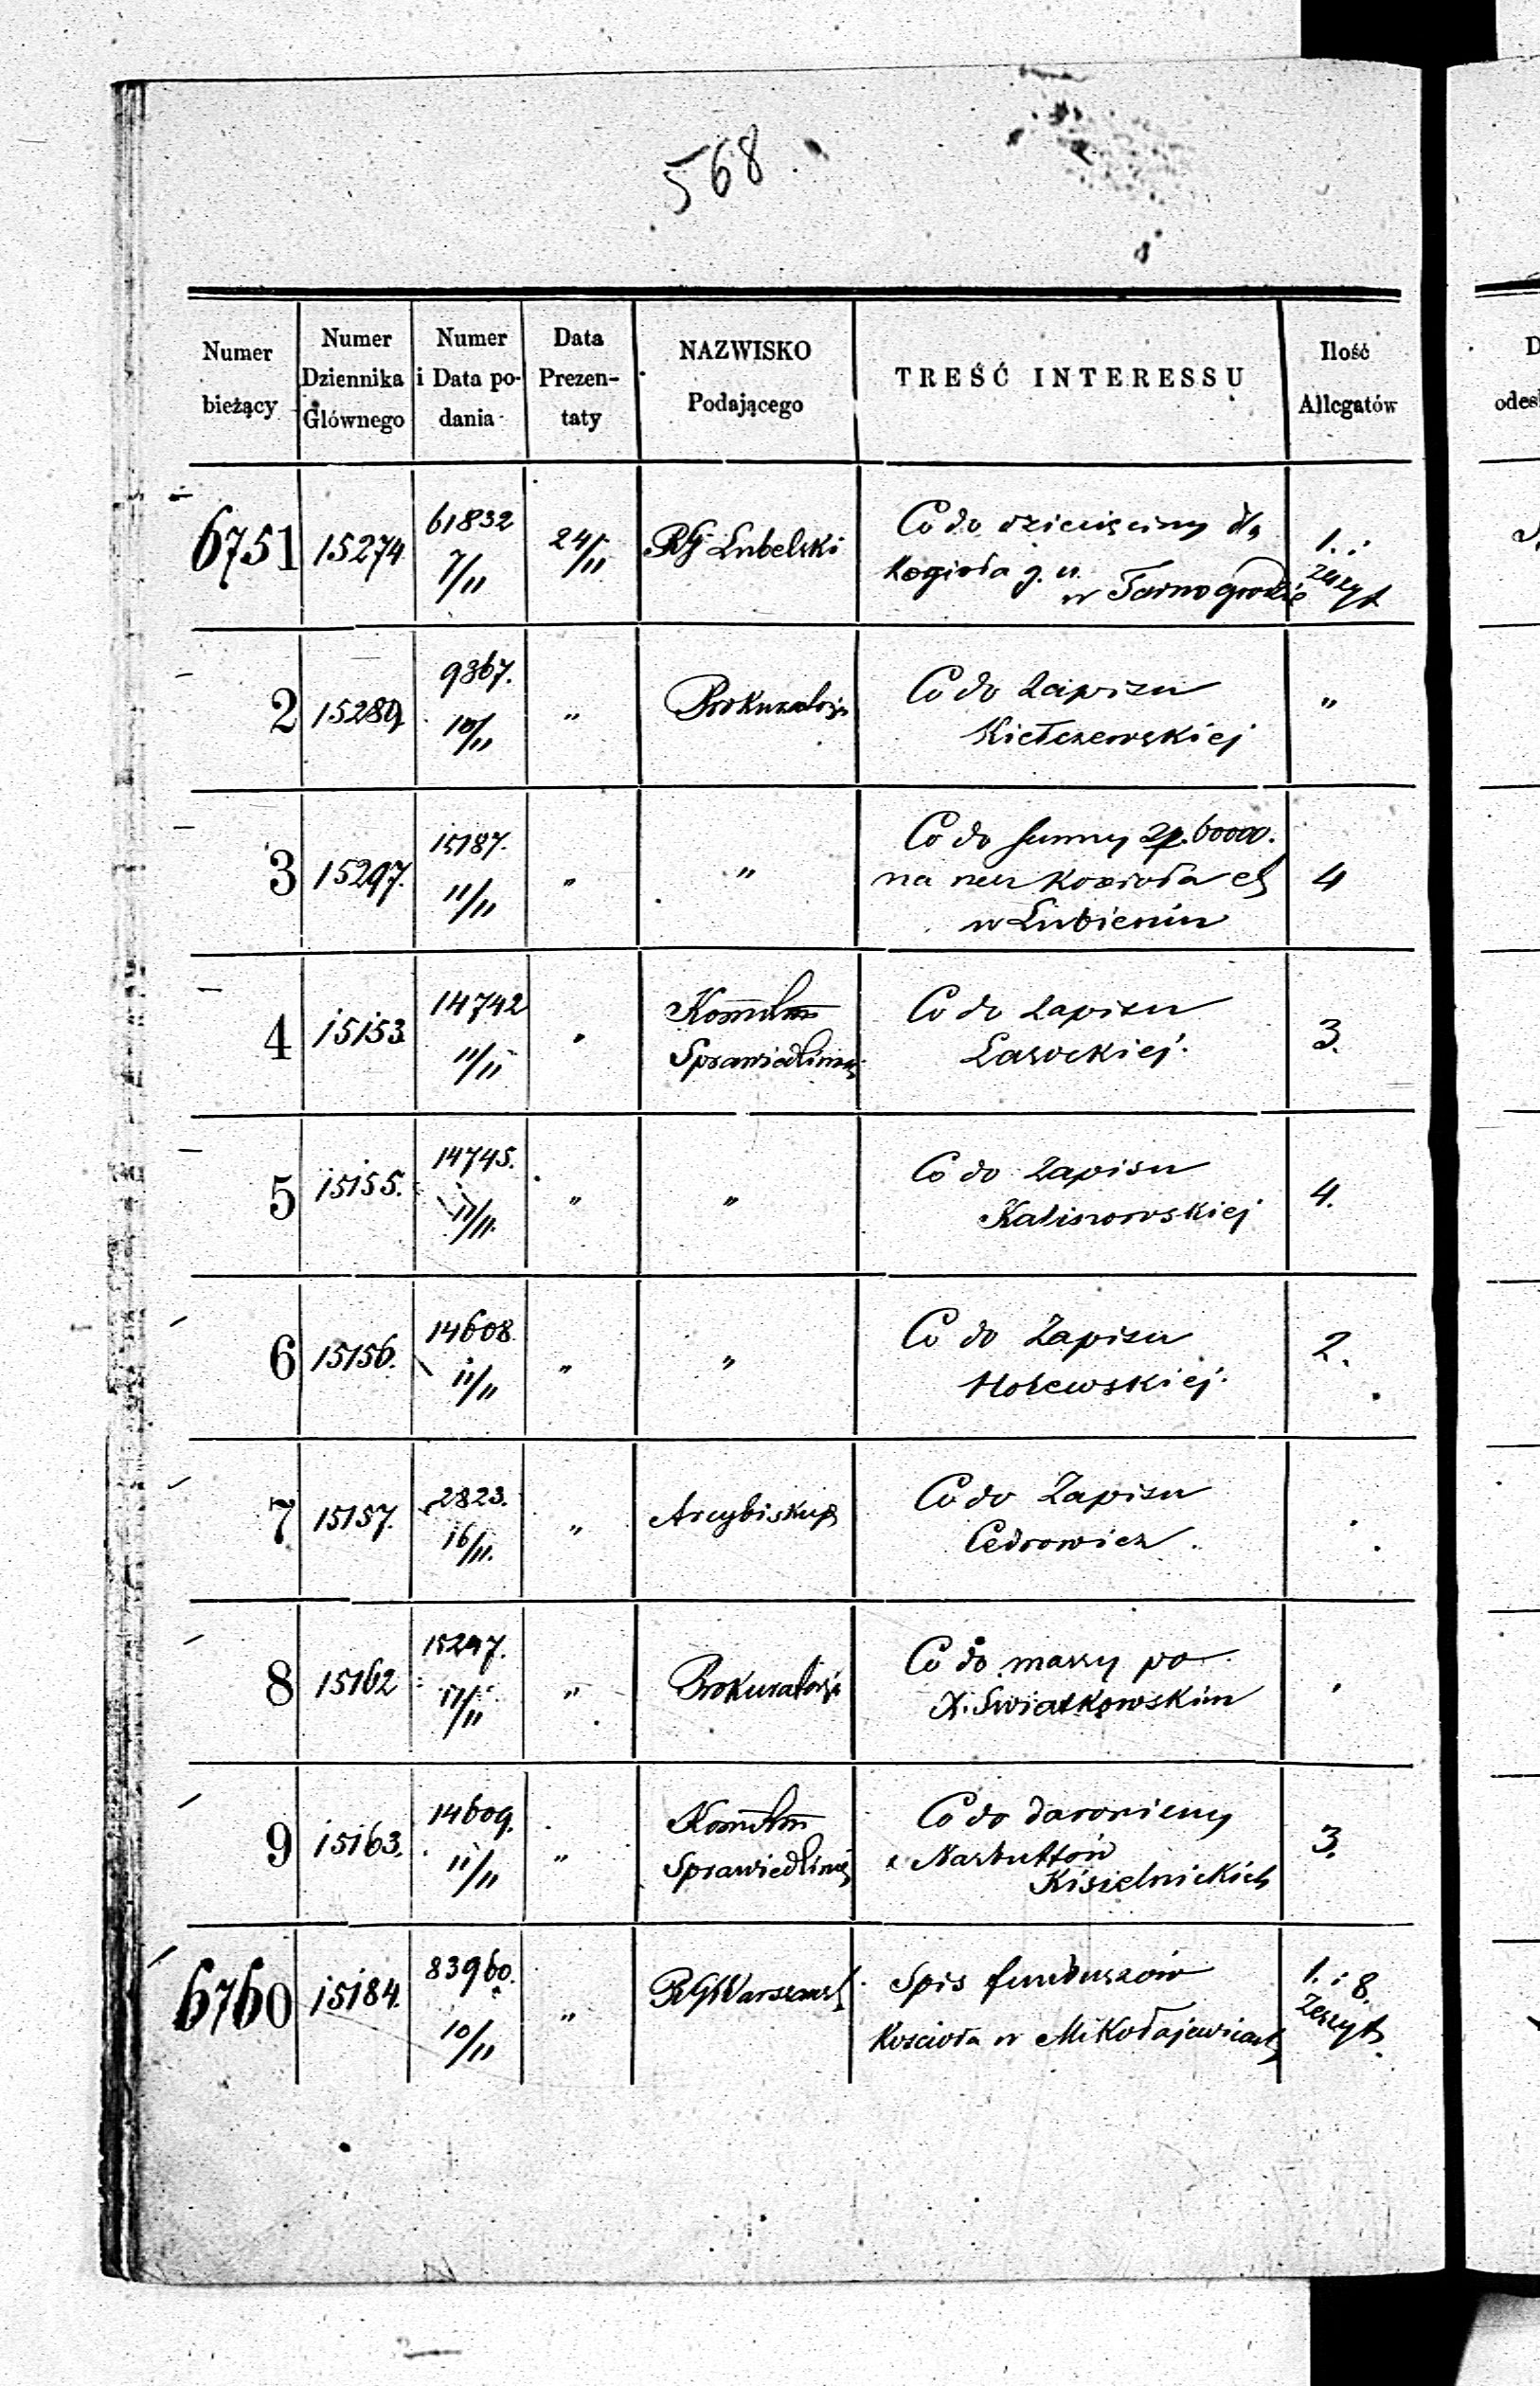 568.
Numer bieżący | Numer Dziennika Głównego | Numer i Data podania | Data Prezentaty | NAZWISKO Podającego | TREŚĆ INTERESSU | Ilość Allegatów
6751 | 15274 | 61832 7/11 | 24/11 | RG Lubelski | Co do dziesięciny dla
kościoła g. u.
w Tarnogrodzie | 1. zeszyt
2 | 15289 | 9367. 10/11 | " | Prokuratorja | Co do Zapisu
Kiełczewskiej | "
3 | 15297. | 15187. 11/11 | " | " | Co do summy zp. 60000.
na rzecz Kościoła
w Lubieniu | 4
4 | 15153 | 14742 11/11 | " | Kom
Sprawiedliwoś | Co do Zapisu
Lasockiej. | 3.
5 | 15155. | 14745. 11/11. | " | " | Co do Zapisu
Kalinowskiej | 4.
6 | 15156. | 14608. 11/11 | " | " | Co do Zapisu
Holewskiej. | 2.
7 | 15157. | 2823. 16/11. | " | Arcybiskup | Co do Zapisu
Cedrowicz. | .
8 | 15162 | 15247. 11/11 | " | Prokuratorja | Co do massy po
X. Swiatkowskim | "
9 | 15163. | 14609. 11/11 | " | Kom
Sprawiedliwoś | Co do darowizny
Narbuttów
Kisielnickich | 3.
6760 | 15184. | 83960. 10/11 | " | RG Warszaws | Spis funduszów
Kościoła w Mikołajewicach | 1. : 8. Zeszyt.
D
odes